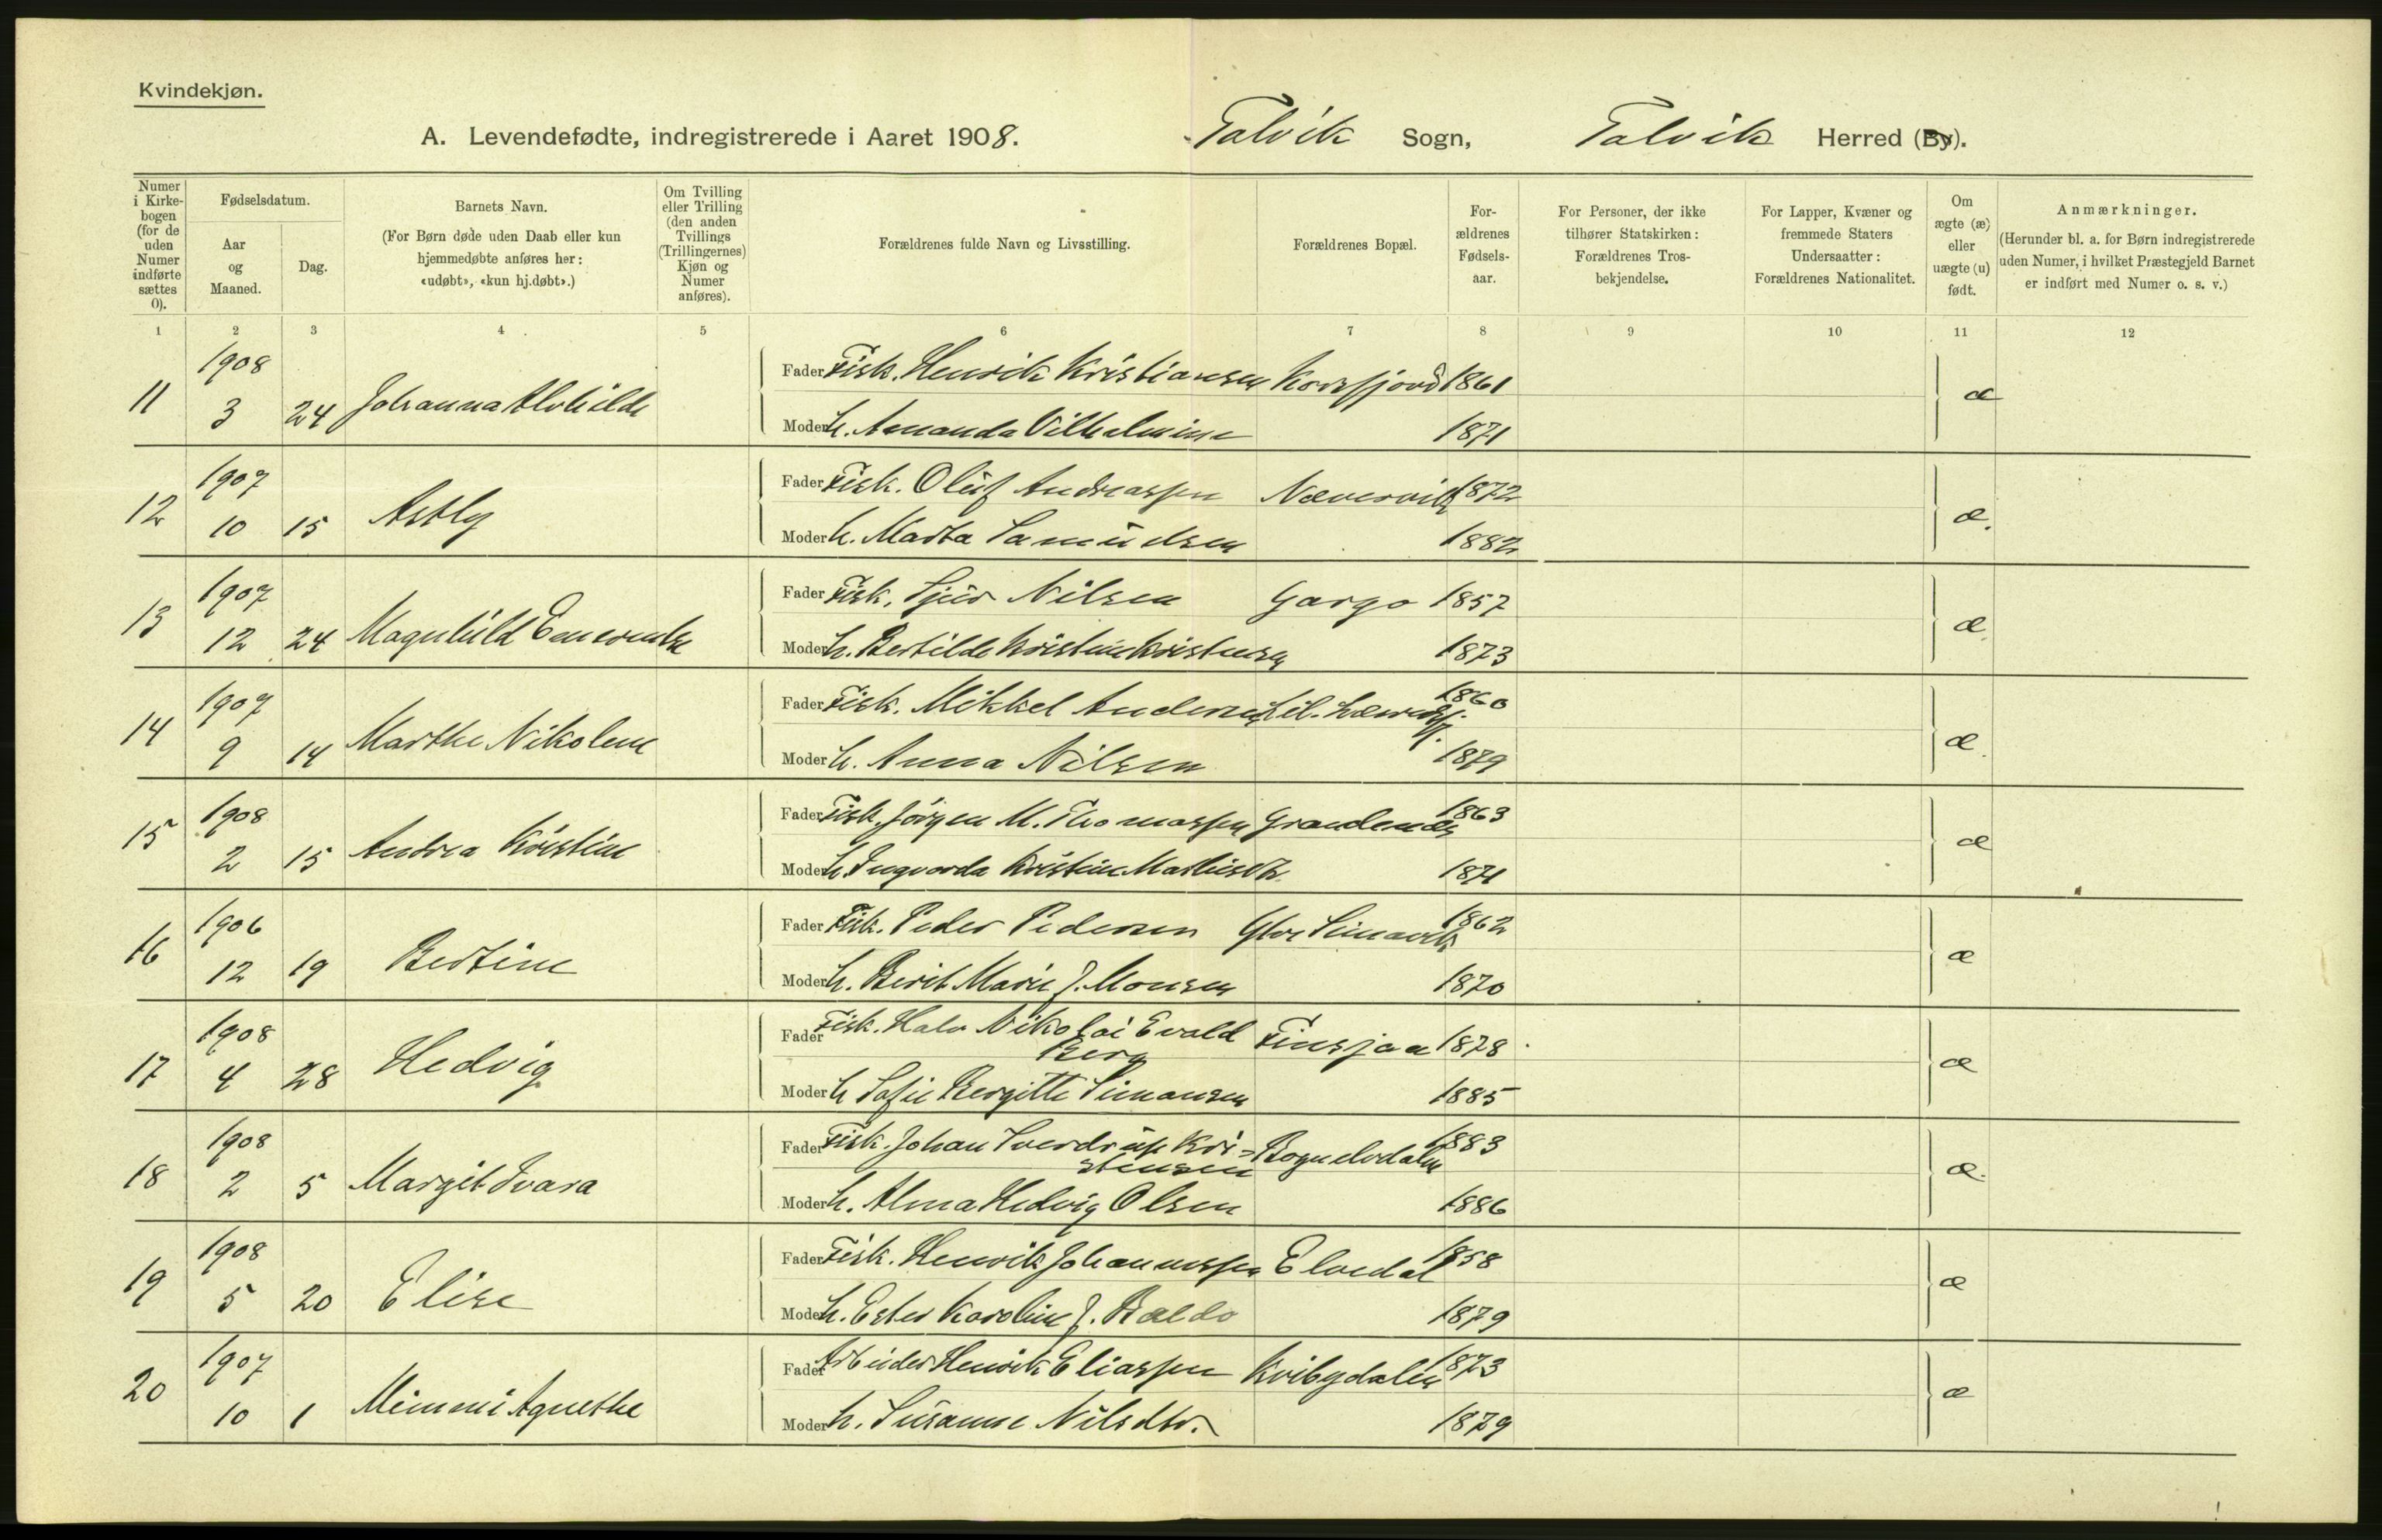 Kvindekjøn.
A. Levendefødte, indregistrerede i Aaret 1908. Talvik Sogn, Talvik Herred (By).
Numer i Kirkebogen (for de uden Numer indførte sættes 0).
Fødselsdatum.
Aar og Maaned.
Dag.
Barnets Navn.
(For Børn døde uden Daab eller kun hjemmedøbte anføres her: «udøbt», «kun hj.døbt».)
Om Tvilling eller Trilling (den anden Tvillings (Trillingernes) Kjøn og Numer anføres).
Forældrenes fulde Navn og Livsstilling.
Forældrenes Bopæl.
Forældrenes Fødselsaar.
For Personer, der ikke tilhører Statskirken: Forældrenes Trosbekjendelse.
For Lapper, Kvæner og fremmede Staters Undersaatter: Forældrenes Nationalitet.
Om ægte (æ) eller uægte (u) født.
Anmærkninger.
(Herunder bl. a. for Børn indregistrerede uden Numer, i hvilket Præstegjeld Barnet er indført med Numer o. s. v.)
1 2 3 4 5 6 7 8 9 10 11 12
11 1908 3 24 Johanna Alvhilde Fader Fisk. Henrik Kristiansen Korsfjord 1861 æ
Moder h. Amanda Vilhelmine 1871
12 1907 10 15 Astly Fader Fisk. Oluf Andreassen Nævervik 1872 æ.
Moder h. Marta Samuelsen 1882
13 1907 12 24 Magnhild Emerentse Fader Fisk. Sjur Nilsen Gargo 1857 æ
Moder h. Bertilde Kristine Kristensen 1873
14 1907 9 14 Marthe Nikoline Fader Fisk. Mikkel Andersen Lil. 1860 æ.
Moder h. Anna Nilsen 1879
15 1908 2 15 Andrea Kristine Fader Fisk. Jørgen M. Thomassen Grandenæs 1863 æ
Moder h. Ingvarda Kristine Mathisdtr. 1871
16 1906 12 19 Bertine Fader Fisk. Peder Pedersen Simavik 1862 æ
Moder h. Berit Marie J. Monsen 1870
17 1908 4 28 Hedvig Fader Fisk. Halv Nikolai Evald Berg Finsjaa 1878 æ
Moder h Sofie Bergitte Simonsen 1885
18 1908 2 5 Margit Ivara Fader Fisk. Johan Sverdrup Kri=stensen Bognelvdalen 1883 æ.
Moder h. Alma Hedvig Olsen 1886
19 1908 5 20 Elise Fader Fisk. Henrik Johannessen Elvedal 1858 æ
Moder h. Ester Karoline J. Baldo 1879
20 1907 10 1 Mimmi Agnethe Fader Arbeider Henrik Eliassen Kvibydalen 1873 æ
Moder h. Susanne Nilsdtr. 1879